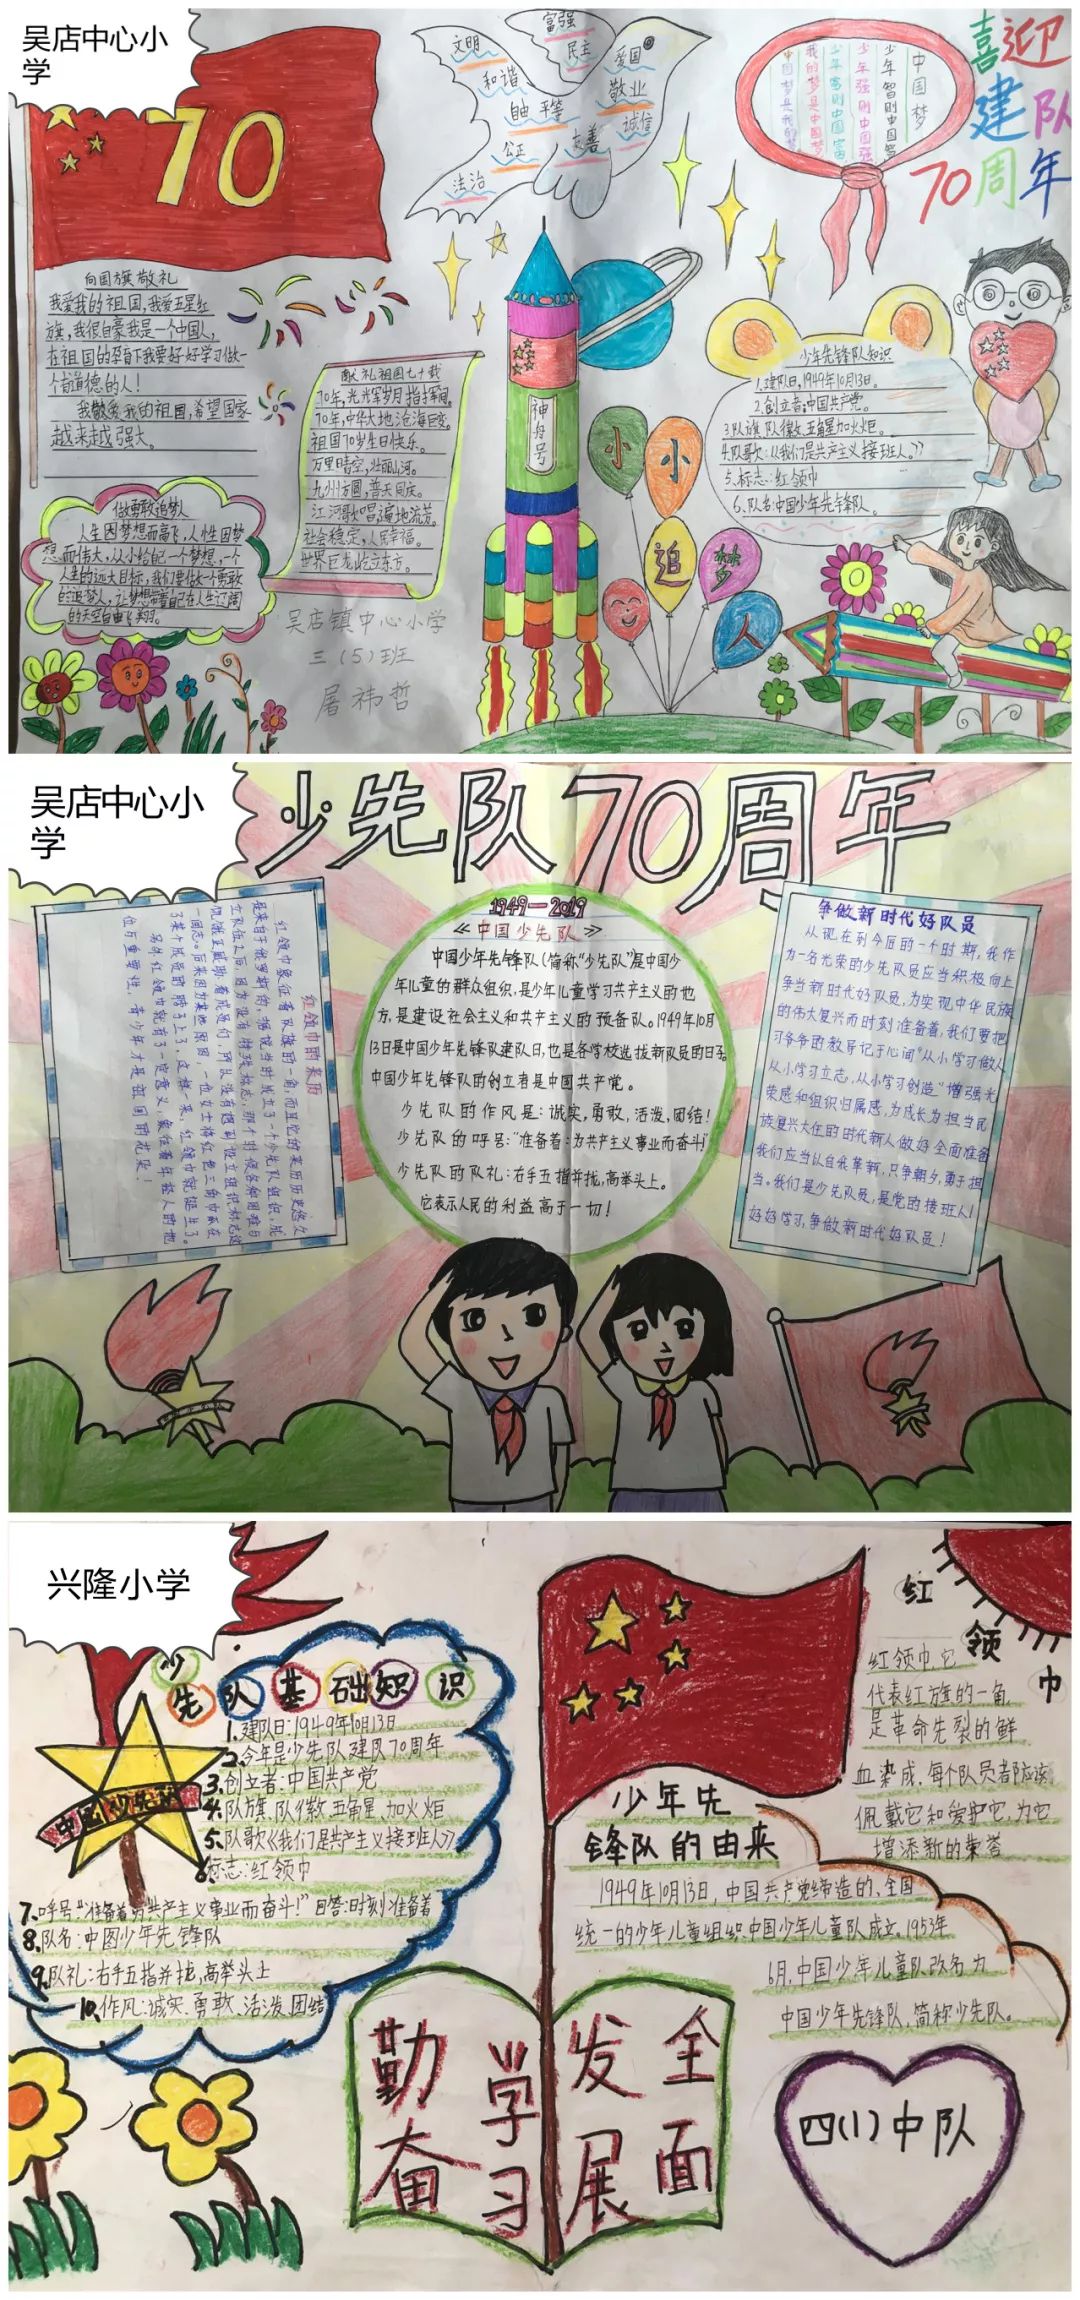 吴店中心小
学
70
向国旗敬礼
我爱我的祖国,我爱五星红
旗,我很自豪我是一个中国人,
在祖国的孕育下我要好好学习做一
个有道德的人!
我敬爱我的祖国,希望国家
越来越强大。
做勇敢追梦人
人生因梦想而高飞,人性因梦
想而伟大,从小给自己一个梦想,一个
人生的远大目标,我们要做一个勇敢
的追梦人,让梦想带着自己在人生辽阔
的天空自由飞翔。
献礼祖国七十载
70年,光辉岁月
70年,中华大地沧海巨变。
祖国70岁生日快乐。
万里晴空,壮丽山河。
九州方圆,普天同庆。
江河歌唱,遍地流芳。
社会稳定,人民幸福。
世界巨龙屹立东方。
吴店镇中心小学
三(5)班
屠祎哲
富强
文明
民主
爱国
和谐
敬业
自由 平等
诚信
公正
友善
法治
神舟号
中国梦
少年智则中国智
少年强则中国强
少年富则中国富
我的梦是中国梦
中国梦是我的梦
喜迎
建队
70周年
少年先锋队知识
1.建队日,1949年10月13日。
2.创立者:中国共产党。
3.队旗 队徽:五角星加火炬。
4.队歌:《我们是共产主义接班人。》
5.标志:红领巾
6.队名:中国少年先锋队。
小小
追梦
人
吴店中心小
学
少先队70周年
红领巾的来历
红领巾象征着队旗的一角,而且它的来历历史悠久
1949—2019
《中国少先队》
中国少年先锋队(简称“少先队”)是中国少
年儿童的群众组织,是少年儿童学习共产主义的地
方,是建设社会主义和共产主义的预备队。1949年10月
13日是中国少年先锋队建队日,也是各学校选拔新队员的日子。
中国少年先锋队的创立者是中国共产党。
少先队的作风是:诚实,勇敢,活泼,团结!
少先队的呼号:“准备着:为共产主义事业而奋斗!”
少先队的队礼:右手五指并拢,高举头上。
它表示人民的利益高于一切!
争做新时代好队员
从现在到今后的一个时期,我作
为一名光荣的少先队员应当积极向上
争当新时代好队员,为实现中华民族
的伟大复兴而时刻准备着,我们要把
习爷爷的教导记于心间“从小学习做人
从小学习立志,从小学习创造”增强光
荣感和组织归属感,为成长为担当民
族复兴大任的时代新人做好全面准备
我们应当以自我革新,只争朝夕,勇于担
当。我们是少先队员,是党的接班人!
好好学习,争做新时代好队员!
兴隆小学
少先队基础知识
1.建队日:1949年10月13日
2.今年是少先队建队70周年
3.创立者:中国共产党
4.队旗、队徽:五角星加火炬
5.队歌《我们是共产主义接班人》
6.标志:红领巾
7.呼号:“准备着为共产主义事业而奋斗!”回答:时刻准备着
8.队名:中国少年先锋队
9.队礼:右手五指并拢,高举头上
10.作风:诚实、勇敢、活泼、团结
中国少先队
红领巾
红领巾,它
代表红旗的一角
是革命先裂的鲜
血染成,每个队员者陊应该
佩戴它和爱护它,为它
增添新的荣誉
少年先
锋队的由来
1949年10月13日,中国共产党缔造的、全国
统一的少年儿童组织:中国少年儿童队成立。1953年
6月,中国少年儿童队改名为
中国少年先锋队,简称少先队。
勤奋学习
全面发展
四(1)中队